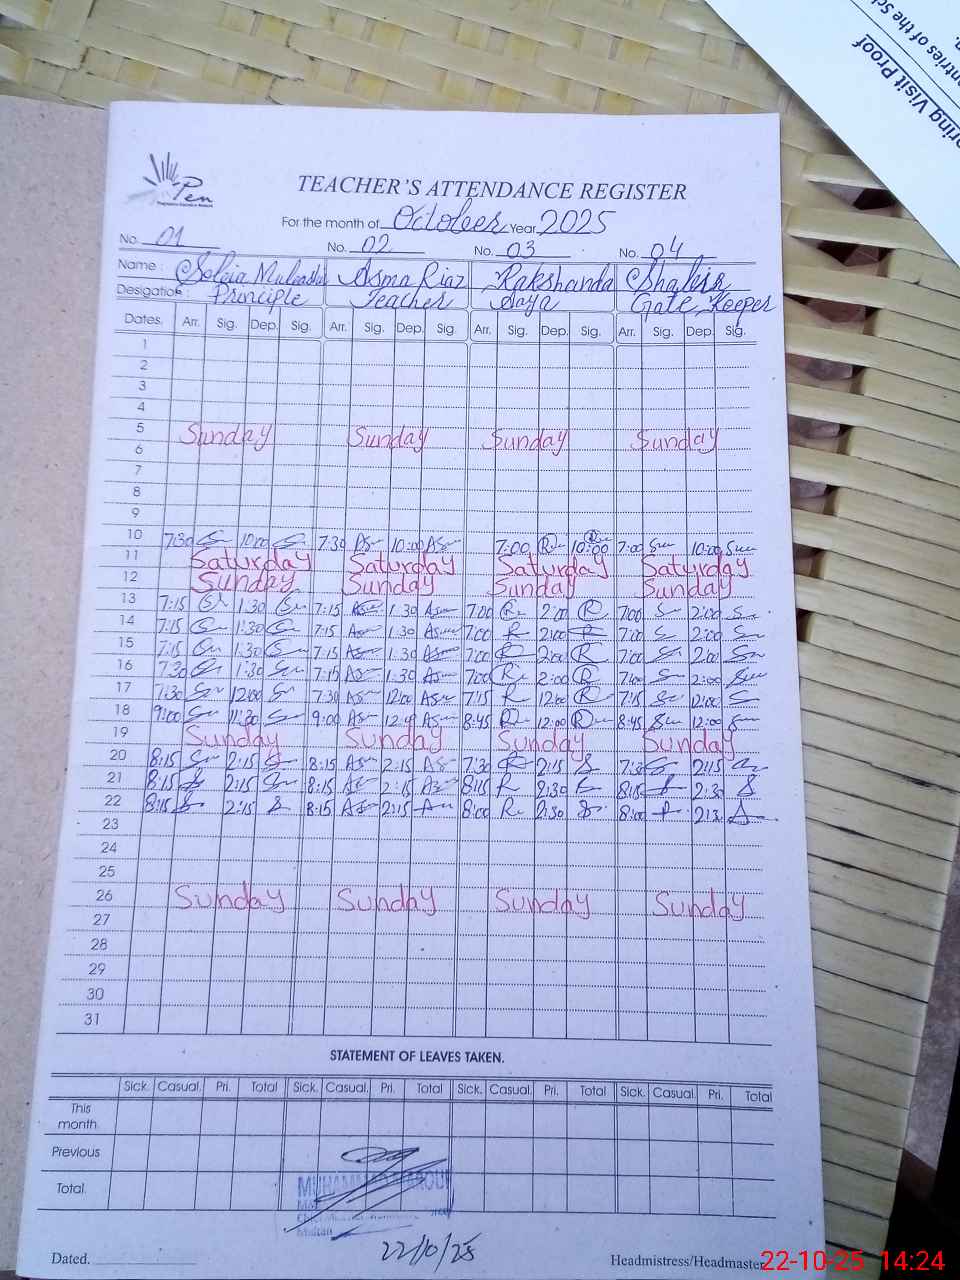 ntries of the Sc
oring Visit Proof
Pen
TEACHER'S ATTENDANCE REGISTER
For the month of October Year 2025
No. 01 No. 02 No. 03 No. 04
Name : Asma Riaz Rakshanda
Desigation : Principle Teacher Aaya Gate Keeper
Dates. Arr. Sig. Dep. Sig. Arr. Sig. Dep. Sig Arr. Sig. Dep. Sig. Arr. Sig. Dep. Sig.
1
2
3
4
5 Sunday Sunday Sunday Sunday
6
7
8
9
10 7:30 10:00 7:30 10:00 7:00 10:00 7:00 10:00
11 Saturday Saturday Saturday Saturday
12 Sunday Sunday Sunday Sunday
13 7:15 1:30 7:15 1:30 7:00 2:00 7:00 2:00
14 7:15 1:30 7:15 1:30 7:00 2:00 7:00 2:00
15 7:15 1:30 7:15 1:30 7:00 2:00 7:00 2:00
16 7:30 1:30 7:15 1:30 7:00 2:00 7:00 2:00
17 7:30 12:00 7:30 12:00 7:15 12:00 7:15 12:00
18 9:00 11:30 9:00 8:45 12:00 8:45 12:00
19 Sunday Sunday Sunday Sunday
20 8:15 2:15 8:15 2:15 7:30 2:15 7:30 2:15
21 8:15 2:15 8:15 2:15 8:15 2:30 8:15 2:30
22 8:15 2:15 8:15 2:15 8:00 2:30 8:00
23
24
25
26 Sunday Sunday Sunday Sunday
27
28
29
30
31
STATEMENT OF LEAVES TAKEN.
Sick. Casual. Pri. Total Sick. Casual. Pri. Total Sick. Casual. Pri. Total Sick. Casual. Pri. Total
This
month.
Previous
Total.
22/10/25
Dated. Headmistress/Headmaster
22-10-25 14:24